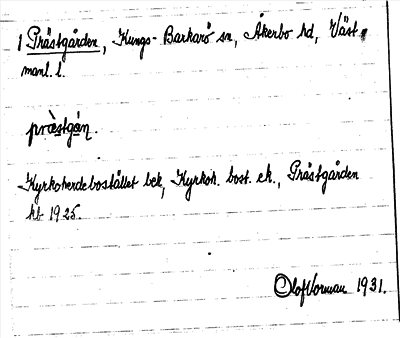 1 Prästgården, Kungs-Barkarö sn, Åkerbo hd, Väst
manl. l.
præ̀stgán.
Kyrkoherdebostället bek, Kyrkoh. bost. ek., Prästgården
kb 1925.
Olof Vorman 1931.